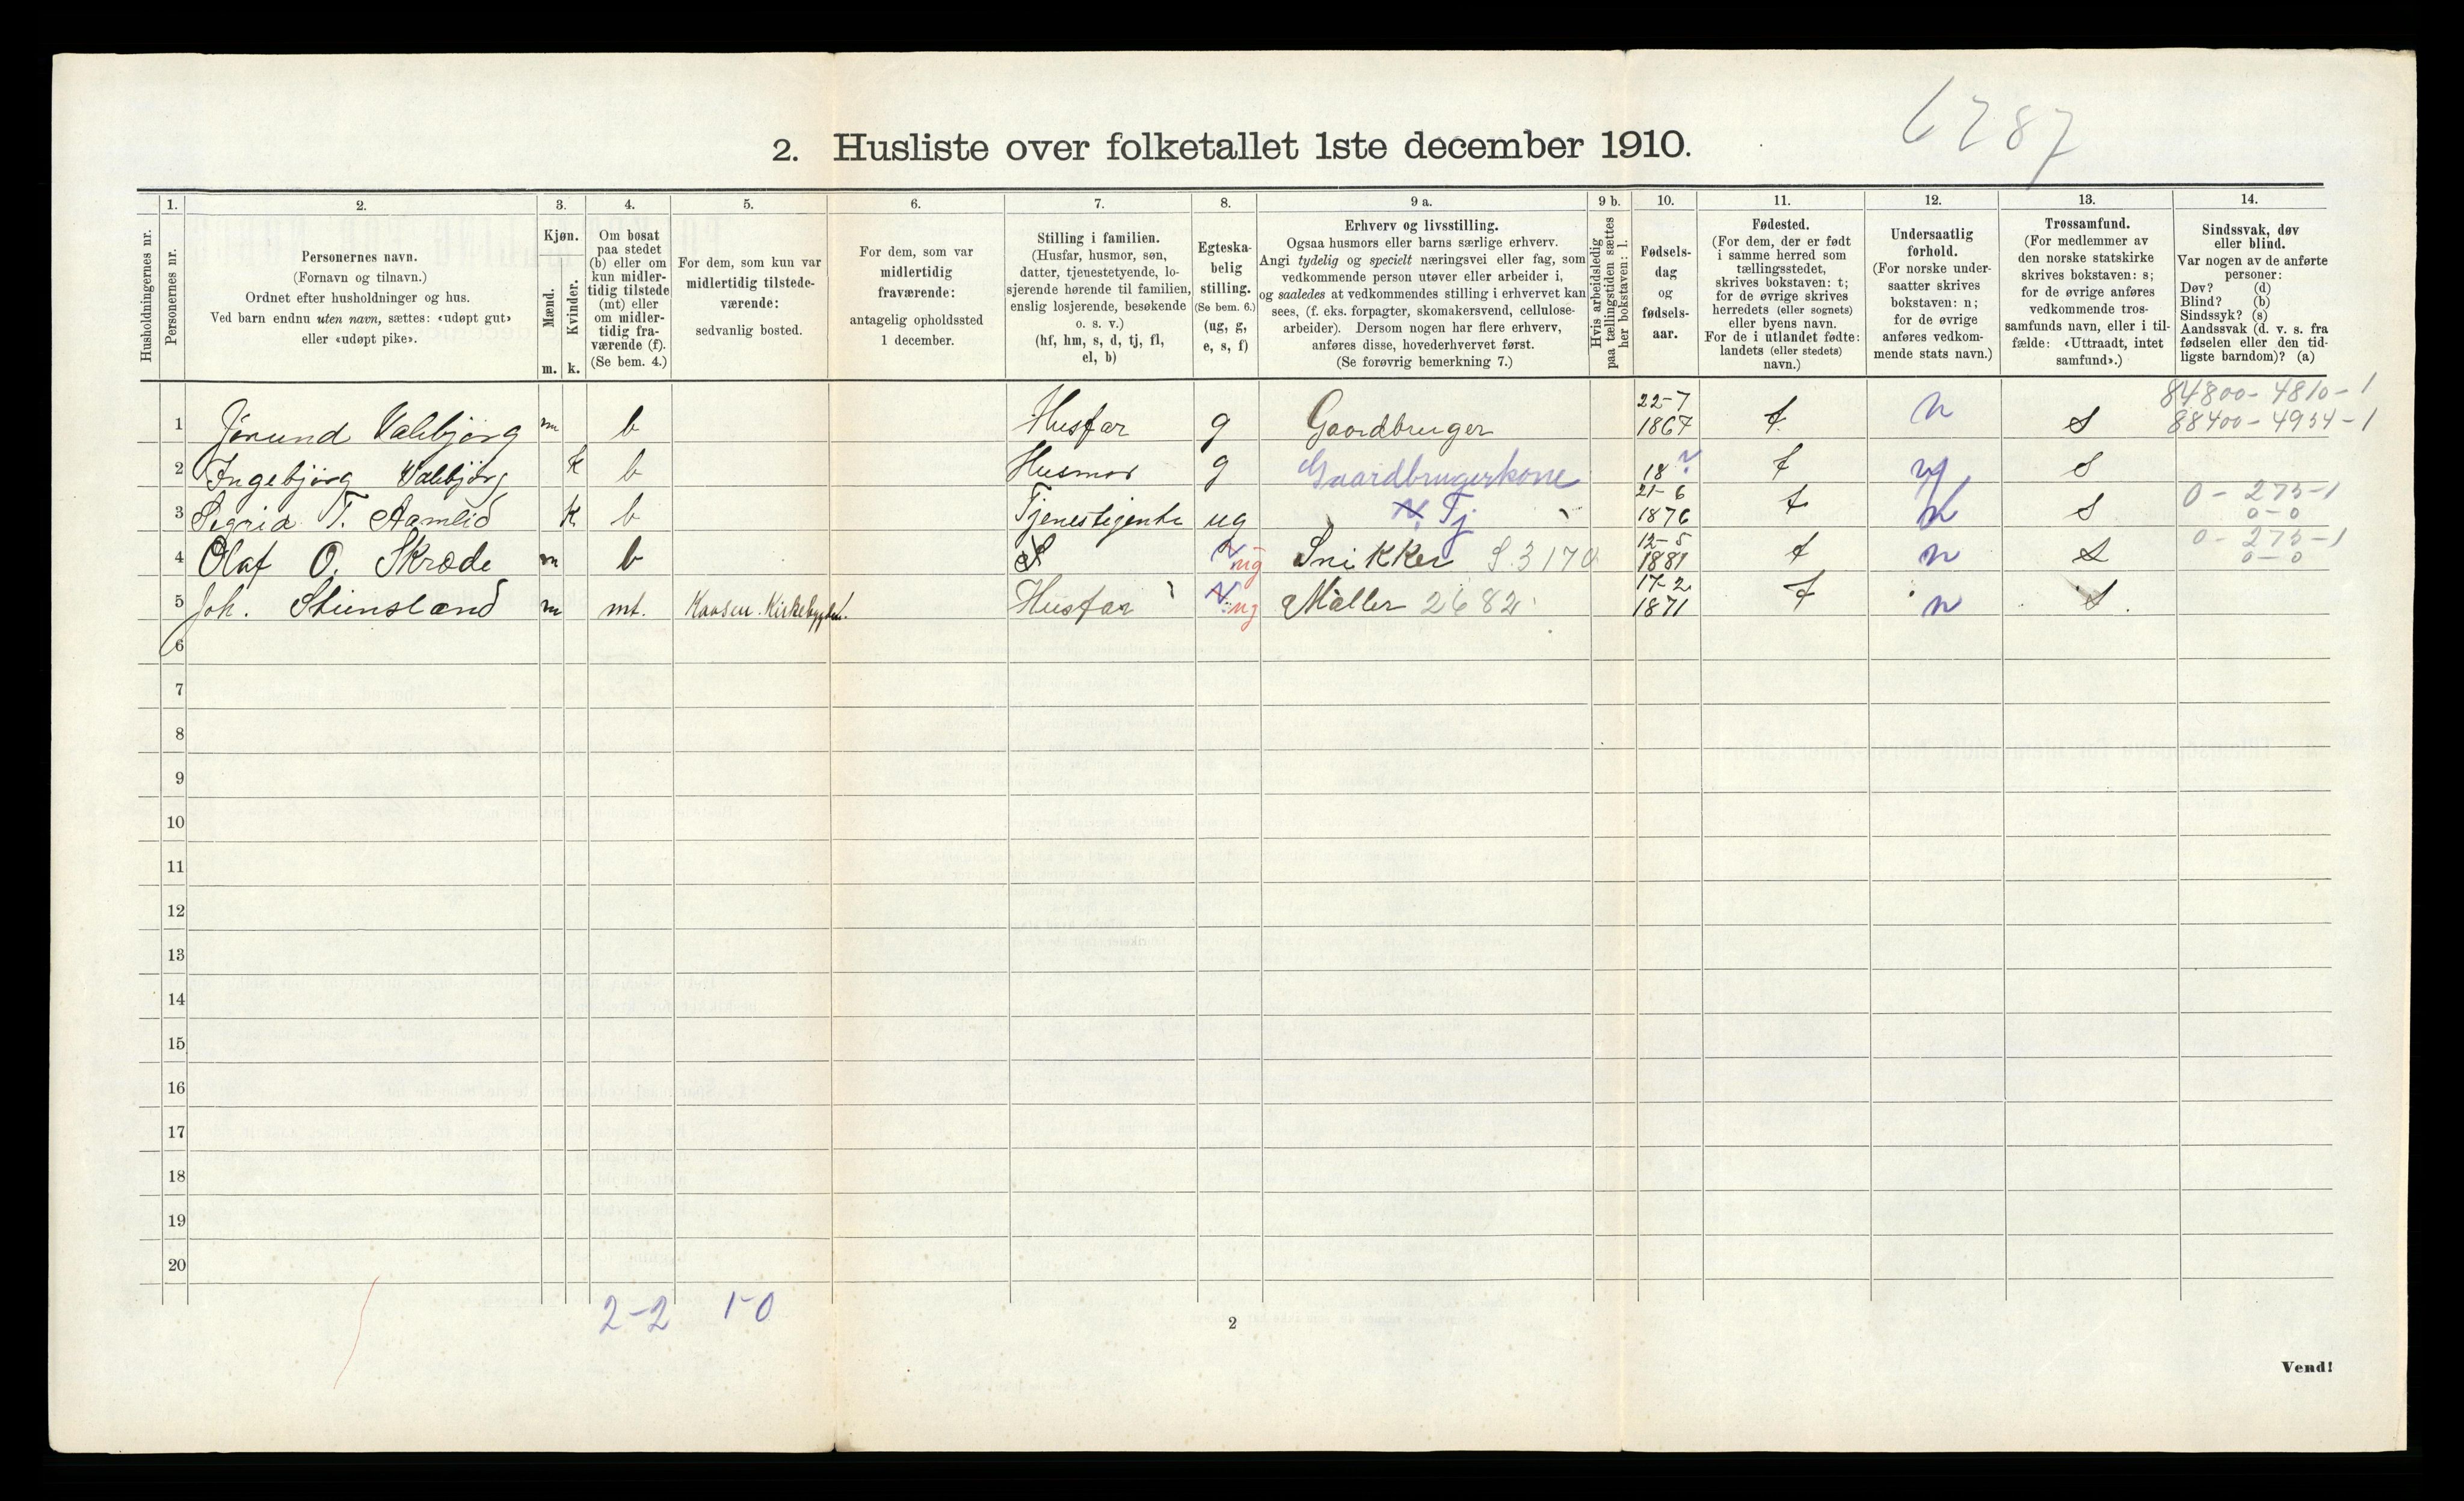 6287
2. Husliste over folketallet 1ste december 1910.
Husholdningernes nr.
1.
Personernes nr.
2.
Personernes navn.
(Fornavn og tilnavn.)
Ordnet efter husholdninger og hus.
Ved barn endnu uten navn, sættes: «udøpt gut»
eller «udøpt pike».
3.
Kjøn.
Mænd.
Kvinder.
m. k.
4.
Om bosat
paa stedet
(b) eller om
kun midler-
tidig tilstede
(mt) eller
om midler-
tidig fra-
værende (f).
(Se bem. 4.)
5.
For dem, som kun var
midlertidig tilstede-
værende:
sedvanlig bosted.
6.
For dem, som var
midlertidig
fraværende:
antagelig opholdssted
1 december.
7.
Stilling i familien.
(Husfar, husmor, søn,
datter, tjenestetyende, lo-
sjerende hørende til familien,
enslig losjerende, besøkende
o. s. v.)
(hf, hm, s, d, tj, fl,
el, b)
8.
Egteska-
belig
stilling.
(Se bem. 6.)
(ug, g,
e, s, f)
9 a.
Erhverv og livsstilling.
Ogsaa husmors eller barns særlige erhverv.
Angi tydelig og specielt næringsvei eller fag, som
vedkommende person utøver eller arbeider i,
og saaledes at vedkommendes stilling i erhvervet kan
sees, (f. eks. forpagter, skomakersvend, cellulose-
arbeider). Dersom nogen har flere erhverv,
anføres disse, hovederhvervet først.
(Se forøvrig bemerkning 7.)
9 b.
Hvis arbeidsledig
paa tællingstiden sættes
her bokstaven: l.
10.
Fødsels-
dag
og
fødsels-
aar.
11.
Fødested.
(For dem, der er født
i samme herred som
tællingsstedet,
skrives bokstaven: t;
for de øvrige skrives
herredets (eller sognets)
eller byens navn.
For de i utlandet fødte:
landets (eller stedets)
navn.)
12.
Undersaatlig
forhold.
(For norske under-
saatter skrives
bokstaven: n;
for de øvrige
anføres vedkom-
mende stats navn.)
13.
Trossamfund.
(For medlemmer av
den norske statskirke
skrives bokstaven: s;
for de øvrige anføres
vedkommende tros-
samfunds navn, eller i til-
fælde: «Uttraadt, intet
samfund».)
14.
Sindssvak, døv
eller blind.
Var nogen av de anførte
personer:
Døv? (d)
Blind? (b)
Sindssyk? (s)
Aandssvak (d. v. s. fra
fødselen eller den tid-
ligste barndom)? (a)
84800-4810-1
1 Jørund Valebjørg m b Husfar g Gaardbruger 22-7 1867 t n S 88400-4954-1
2 Ingebjørg Valebjørg k b Husmor g Gaardbrugerkone 18 ? t n S
3 Sigrid T. Aamlid k b Tjenestejente ug Tj 21-6 1876 t n S 0-275-1 0-0
4 Olaf O. Skrøde m b S ug Snikker S. 3170 12-5 1881 t n S 0-275-1 0-0
5 Joh. Stiensland m mt. Kaasen. Kirkebygden. Husfar ug Møller 2682 17-2 1871 t n S.
6
7
8
9
10
11
12
13
14
15
16
17
18
19
20
2-2 1-0
2
Vend!